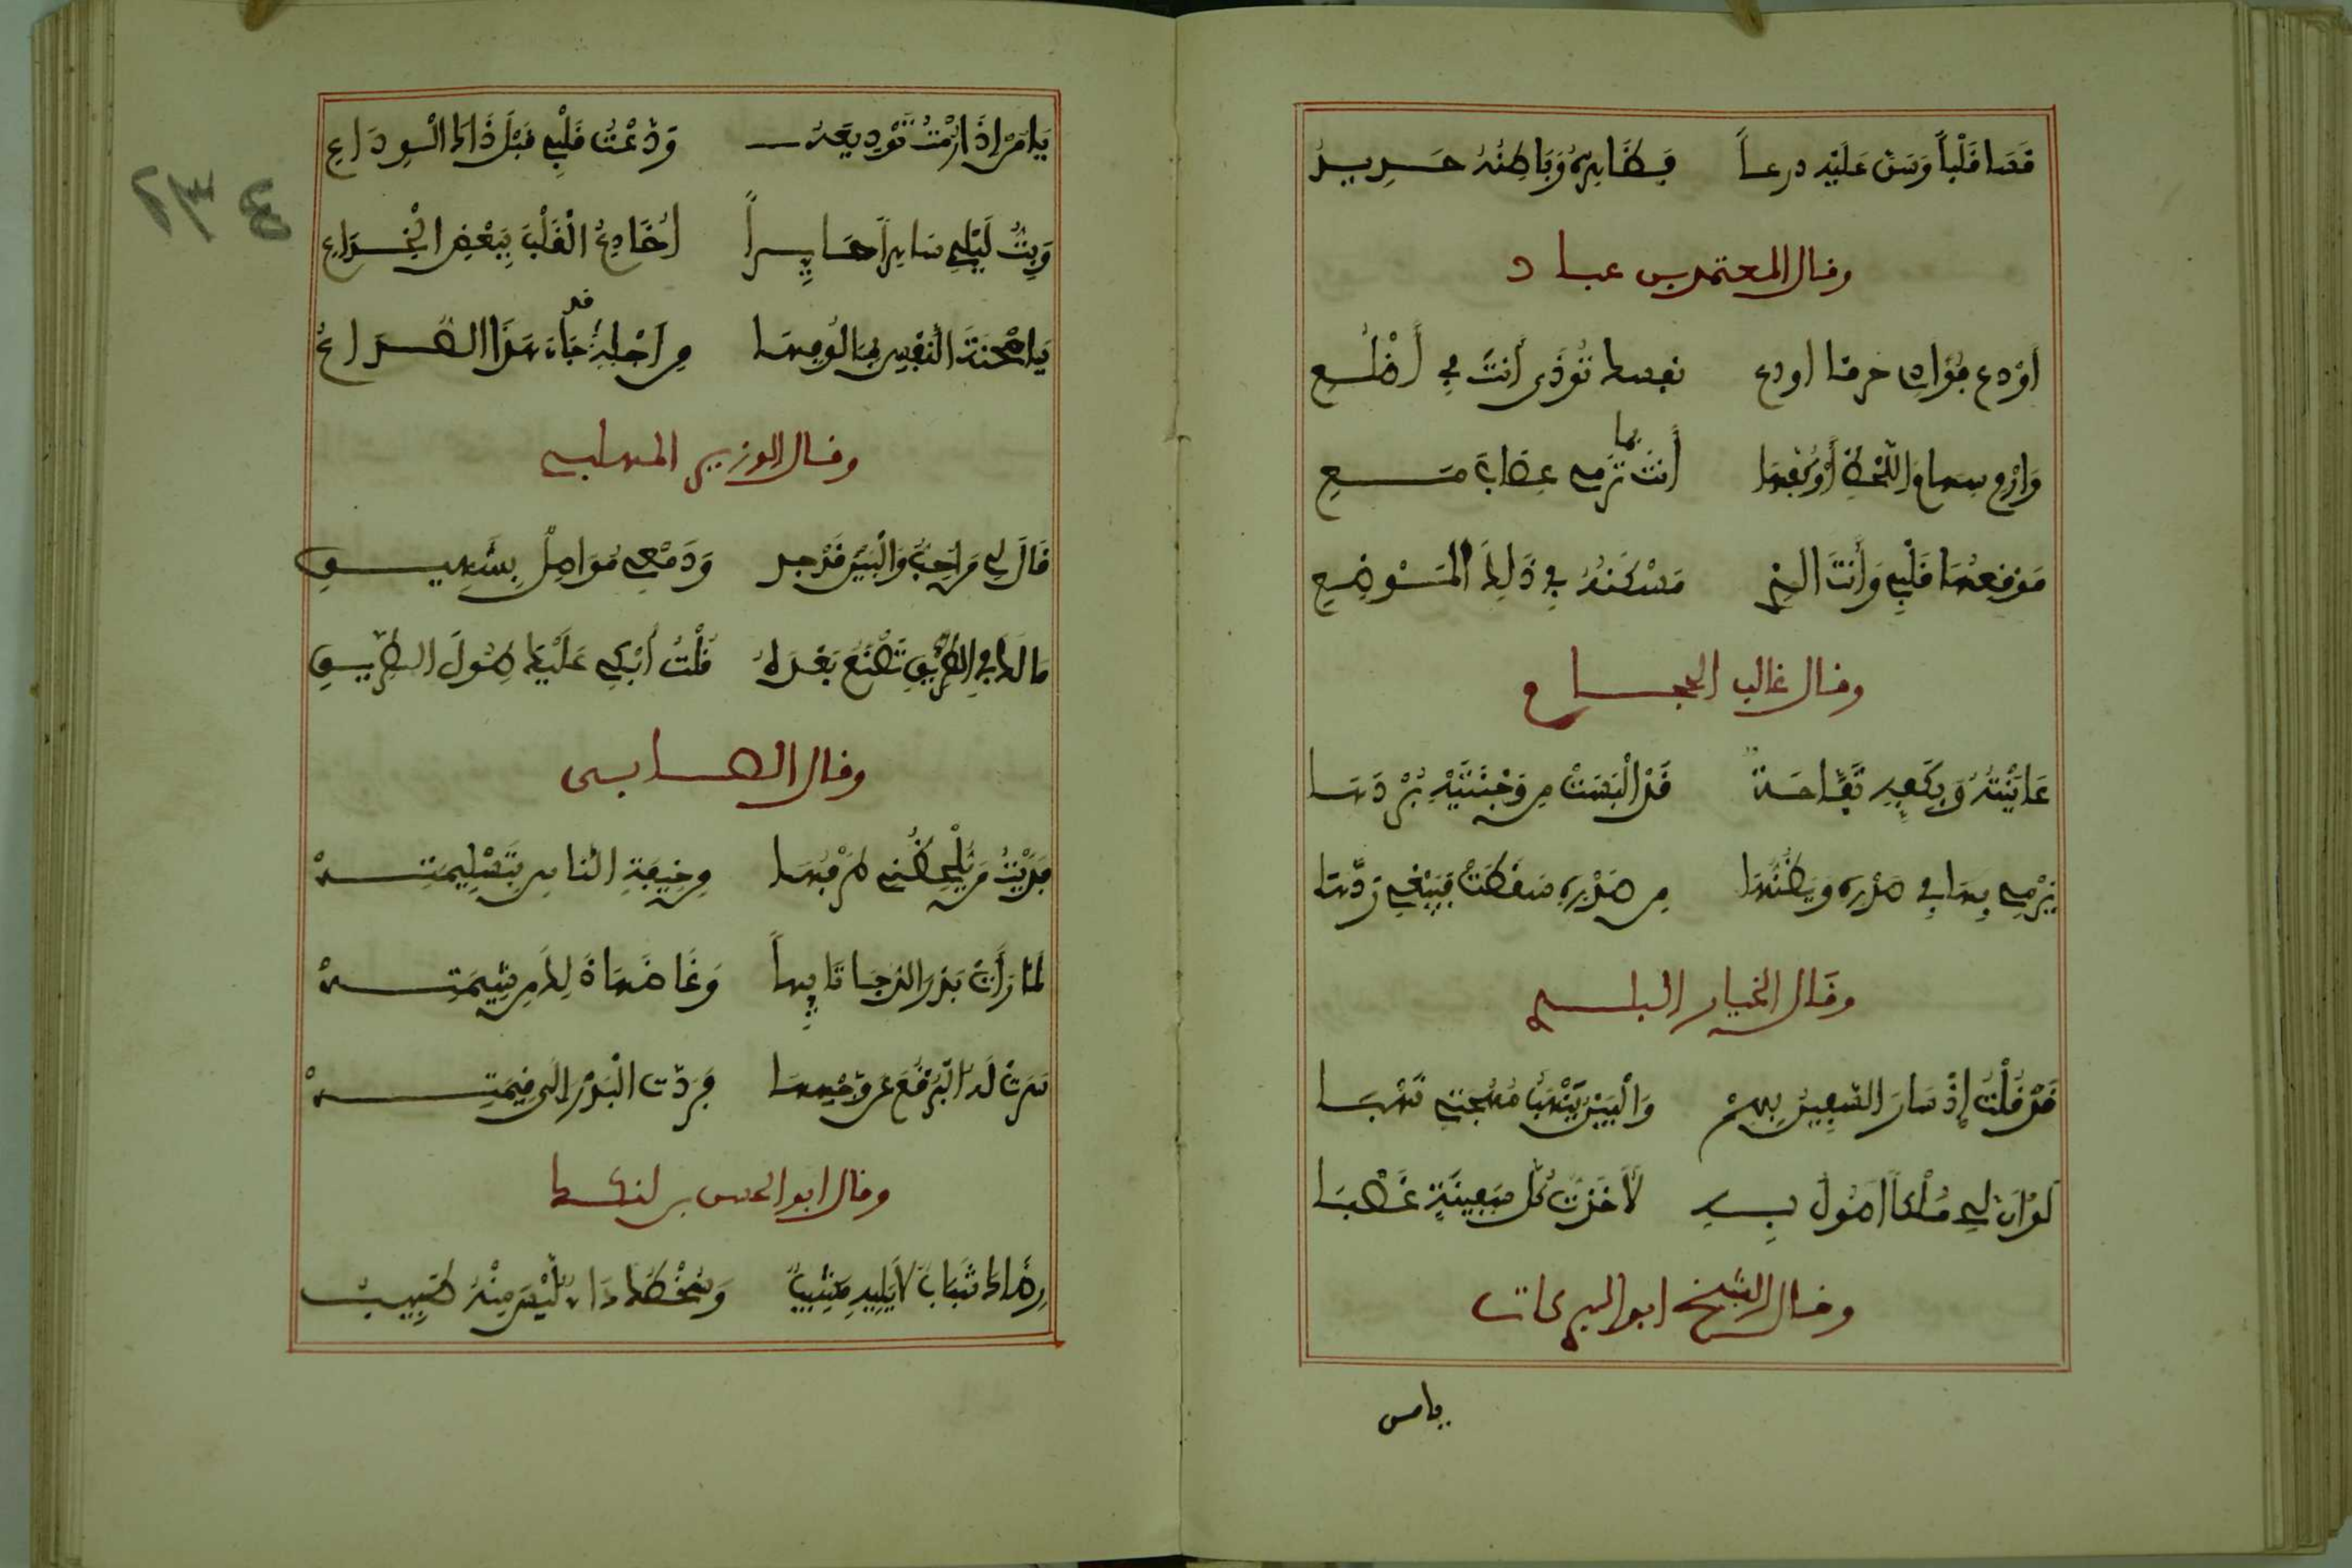 قسا قلباً وسن عليه درعاً فظاهره وباطنه حرير
وقال المعتمد بن عباد
أودع فؤادي حرقا أو دع نفسك تؤذى أنت في أضلعي
وارم سهام اللحظ أو كفها أنت بما ترمي مصاب معي
موقعها قلبي وأنت الذي مسكنه في ذلك الموضع
وقال غالب الحجام
عاينته وبكفه تفاحة قد ألبست من وجنتيه بردها
يرمي بها في صدره ويظنها من صدره سقطت فيبغي ردها
وقال الخباز البلدي
قد قلت إذ سار السفين بهم والبين ينهب مهجتي نهبا
لو أن لي ملكا أصول به لأخذت كل سفينة غصبا
وقال الشيخ ابو البركات
يا من
يا من إذا رمت توديعه ودعت قلبي قبل ذاك الوداع
وبت ليلي ساهراً حايراً أخادع القلب ببعض الخداع
يا محنة النفس بمالوفها من أجله قد جاء هذا الصراع
وقال الوزير المهلبي
قال لي من أحب والبين قد جد ودمعي مواصل بشهيق
ما لذا في الطريق تصنع بعدي قلت أبكي عليك طول الطريق
وقال الصابي
فديت من يلحظني طرفها من خيفة الناس بتسليمته
لما رأت بدر الدجا تايهاً وغاضها ذلك من شيمته
سرت له البرقع عن وجهها فردت البدر إلى قيمته
وقال ابو الحسن بن لنكك
رضاك شباب لا يليه مشيب وسخطك داء ليس منه طبيب